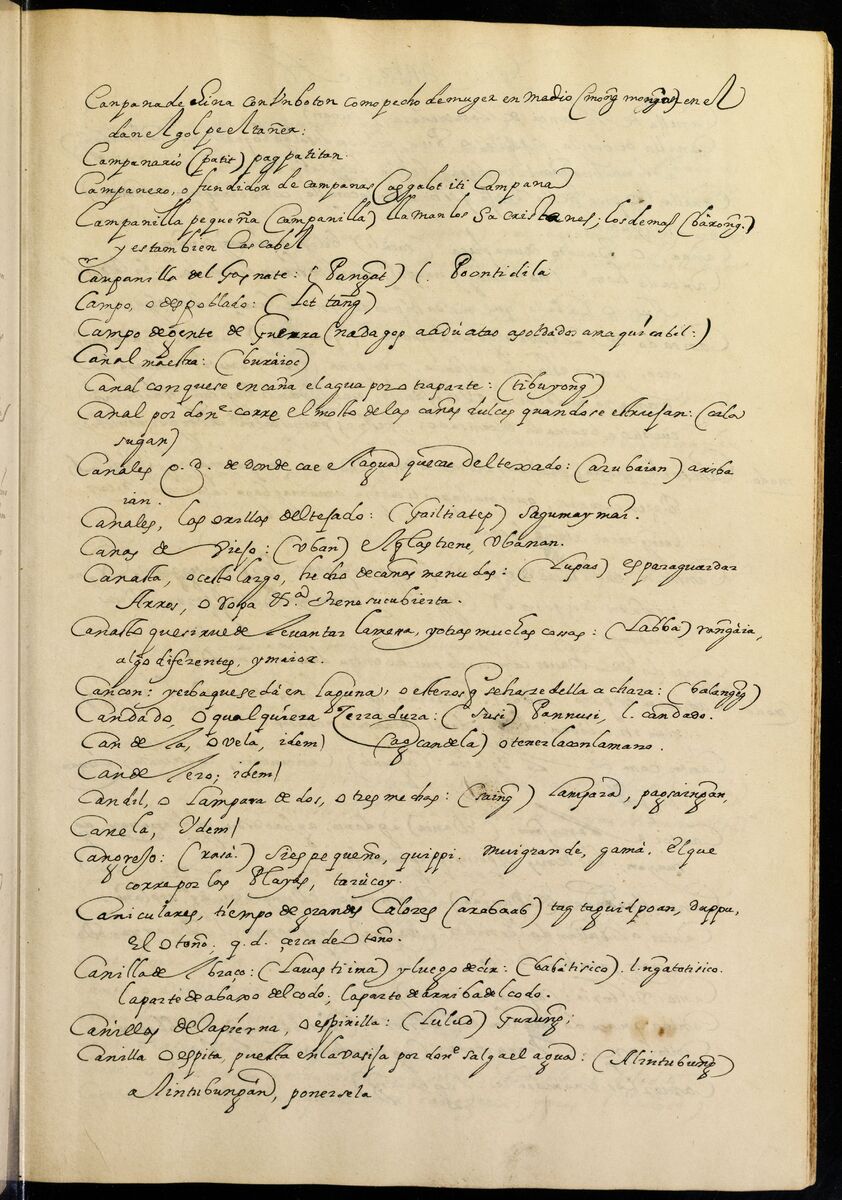 Canpana de china con Vn boton como pecho de muger en medio (mong mongan) en el
dan el golpe el tañer:
Campanario (patit) pagpatitan.
Campanero, o fundidor de campanas (aggalot iti Campana)
Campanilla pequeña (campanilla) llaman los Sacristanes; los demas (bárong.)
y es tambien Cascabel
Canpanilla del Gasnate: (Pangat) l. Poontidila
Campo, o despoblado: (Let tang)
Campo de gente de Guerra (nadagop a adu a tao a soldados a ma qui cabil:)
Canal maestra: (buráioc)
Canal con que se encaña el agua por otra parte: (tibuyong)
Canal por don.e corre el mosto de las cañas dulces quando se estrujan: (cala
sugan)
Canales q. d. de donde cae el agua que cae del texado: (arubaian) ariba
ian.
Canales, las orillas del tejado: Sagumaymai.
Canas de viejo: (vban) El q las tiene, Vbanan.
Canasta, o cesto largo, hecho de cañas menudas: (Lupas) es para guardar
Arros, o ropa &.a tiene su cubierta.
Canasto que sirue de leuantar la mesa, y otras muchas cosas: (Labba) rangáia,
algo diferentes, y maior.
Cancon: yerba que se dá en laguna, o esteros q se hase della achara: (balangeg)
Candado, o qualquiera zerradura: (susi) Pannusi, l. candado.
Candela, o vela, idem (ag candela) o tenerla con la mano.
Candelero; idem
Candil, o Lampara de dos, o tres mechas: (saing) Lampara, pagsaingan,
Canela, Ydem
Cangrejo: (rasá.) Si es pequeño, quippi. Mui grande, gamá. El que
corre por las Playas, tarucoy.
Caniculares, tiempo de grandes Calores (arabaab) tag taguidpoan, duppu,
El otoño; q. d. çerca de otoño.
Canilla de el braço: y luego deçir: l. ngatotisico.
la parte de abaxo del codo; la parte de arriba del codo.
Canillas de la pierna, o espinilla: (Lulud) Gurung;
Canilla o espita, puesta en la vasija por don.e salga el agua: (Alintubung)
Alintubungan, ponersela